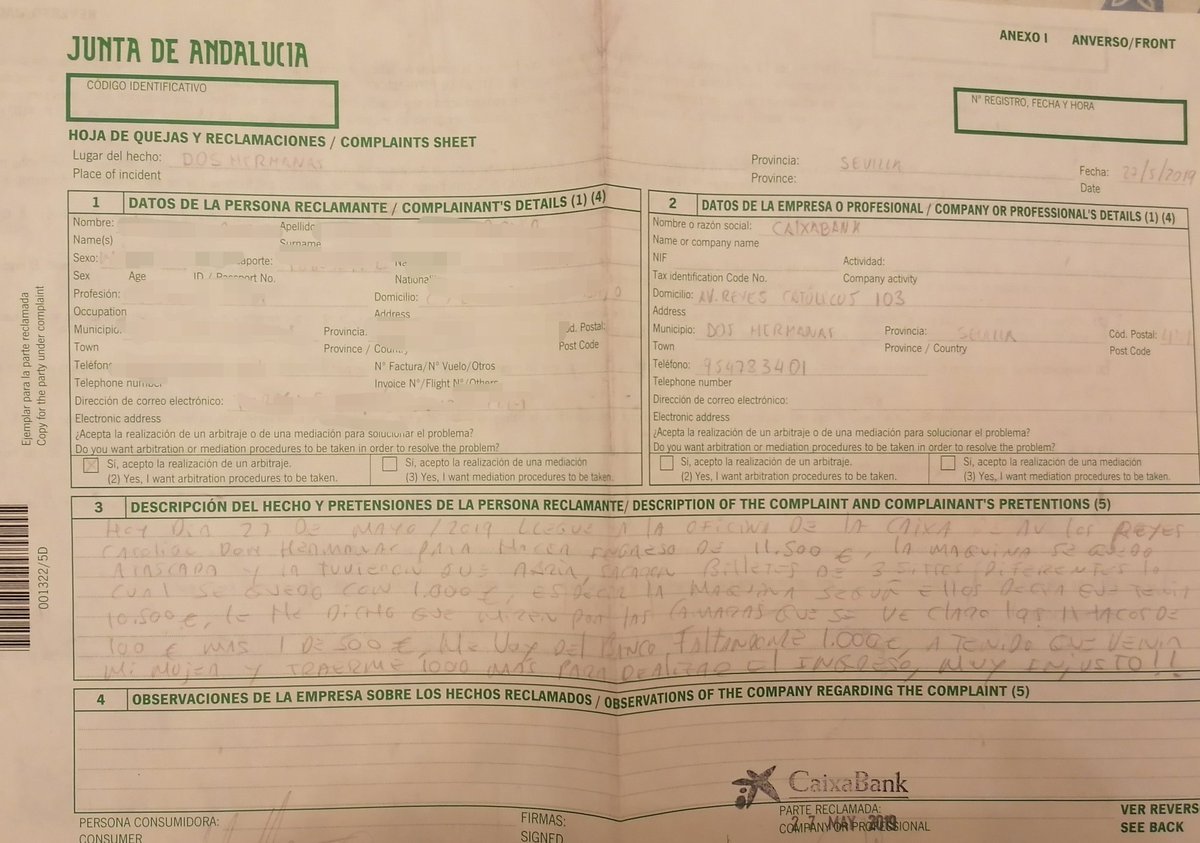 ANEXO I ANVERSO/FRONT
JUNTA DE ANDALUCIA
CÓDIGO IDENTIFICATIVO
Nº REGISTRO, FECHA Y HORA
HOJA DE QUEJAS Y RECLAMACIONES / COMPLAINTS SHEET
Lugar del hecho: DOS HERMANAS Provincia: SEVILLA Fecha: 27/5/2019
Place of incident Province: Date
1 DATOS DE LA PERSONA RECLAMANTE / COMPLAINANT'S DETAILS (1) (4)
Nombre:
Name(s)
Sexo:
Sex Age ID / Passport No.
Profesión: Domicilio:
Occupation Address
Municipio. Provincia.
Town Province / Post Code
N° Factura/N° Vuelo/Otros
Telephone Invoice N°/Flight N°/Others
Dirección de correo electrónico:
Electronic address
¿Acepta la realización de un arbitraje o de una mediación para solucionar el problema?
Do you want arbitration or mediation procedures to be taken in order to resolve the problem?
Si, acepto la realización de un arbitraje. Si, acepto la realización de una mediación
(2) Yes, I want arbitration procedures to be taken. (3) Yes, I want mediation procedures to be taken.
2 DATOS DE LA EMPRESA O PROFESIONAL / COMPANY OR PROFESSIONAL'S DETAILS (1) (4)
Nombre o razón social: CAIXABANK
Name or company name
NIF Actividad:
Tax identification Code No. Company activity
Domicilio: AV. REYES CATÓLICOS 103
Address
Municipio: DOS HERMANAS Provincia: SEVILLA Cód. Postal:
Town Province / Country Post Code
Teléfono: 954783401
Telephone number
Dirección de correo electrónico:
Electronic address
¿Acepta la realización de un arbitraje o de una mediación para solucionar el problema?
Do you want arbitration or mediation procedures to be taken in order to resolve the problem?
Si, acepto la realización de un arbitraje. Si, acepto la realización de una mediación
(2) Yes, I want arbitration procedures to be taken. (3) Yes, I want mediation procedures to be taken.
3 DESCRIPCIÓN DEL HECHO Y PRETENSIONES DE LA PERSONA RECLAMANTE/ DESCRIPTION OF THE COMPLAINT AND COMPLAINANT'S PRETENTIONS (5)
HOY DIA 27 DE MAYO/2019 LLEGUE A LA OFICINA DE LA CAIXA AV LOS REYES
DOS HERMANAS PARA HACER INGRESO DE 11.500 €, LA MAQUINA SE QUEDO
ATASCADA Y LA TUVIERON QUE ABRIR, SACARON BILLETES DE 3 SITIOS DIFERENTES LO
CUAL SE QUEDO CON 1.000 €, ES DECIR LA MAQUINA SEGUN ELLOS DECIA QUE TENIA
10.500 €, LE HE DICHO QUE MIREN POR LAS CAMARAS QUE SE VE CLARO 11 TACOS DE
100 € MAS 1 DE 500 €, ME VOY DEL BANCO FALTANDOME 1.000 €, A TENIDO QUE VENIR
MI MUJER Y TRAERME 1000 MAS PARA REALIZAR EL INGRESO, MUY INJUSTO!!
4 OBSERVACIONES DE LA EMPRESA SOBRE LOS HECHOS RECLAMADOS / OBSERVATIONS OF THE COMPANY REGARDING THE COMPLAINT (5)
CaixaBank
27 MAY 2019
PERSONA CONSUMIDORA: FIRMAS: PARTE RECLAMADA: VER REVERS
CONSUMER SIGNED COMPANY OR PROFESSIONAL SEE BACK
Ejemplar para la parte reclamada
Copy for the party under complaint
001322/5D